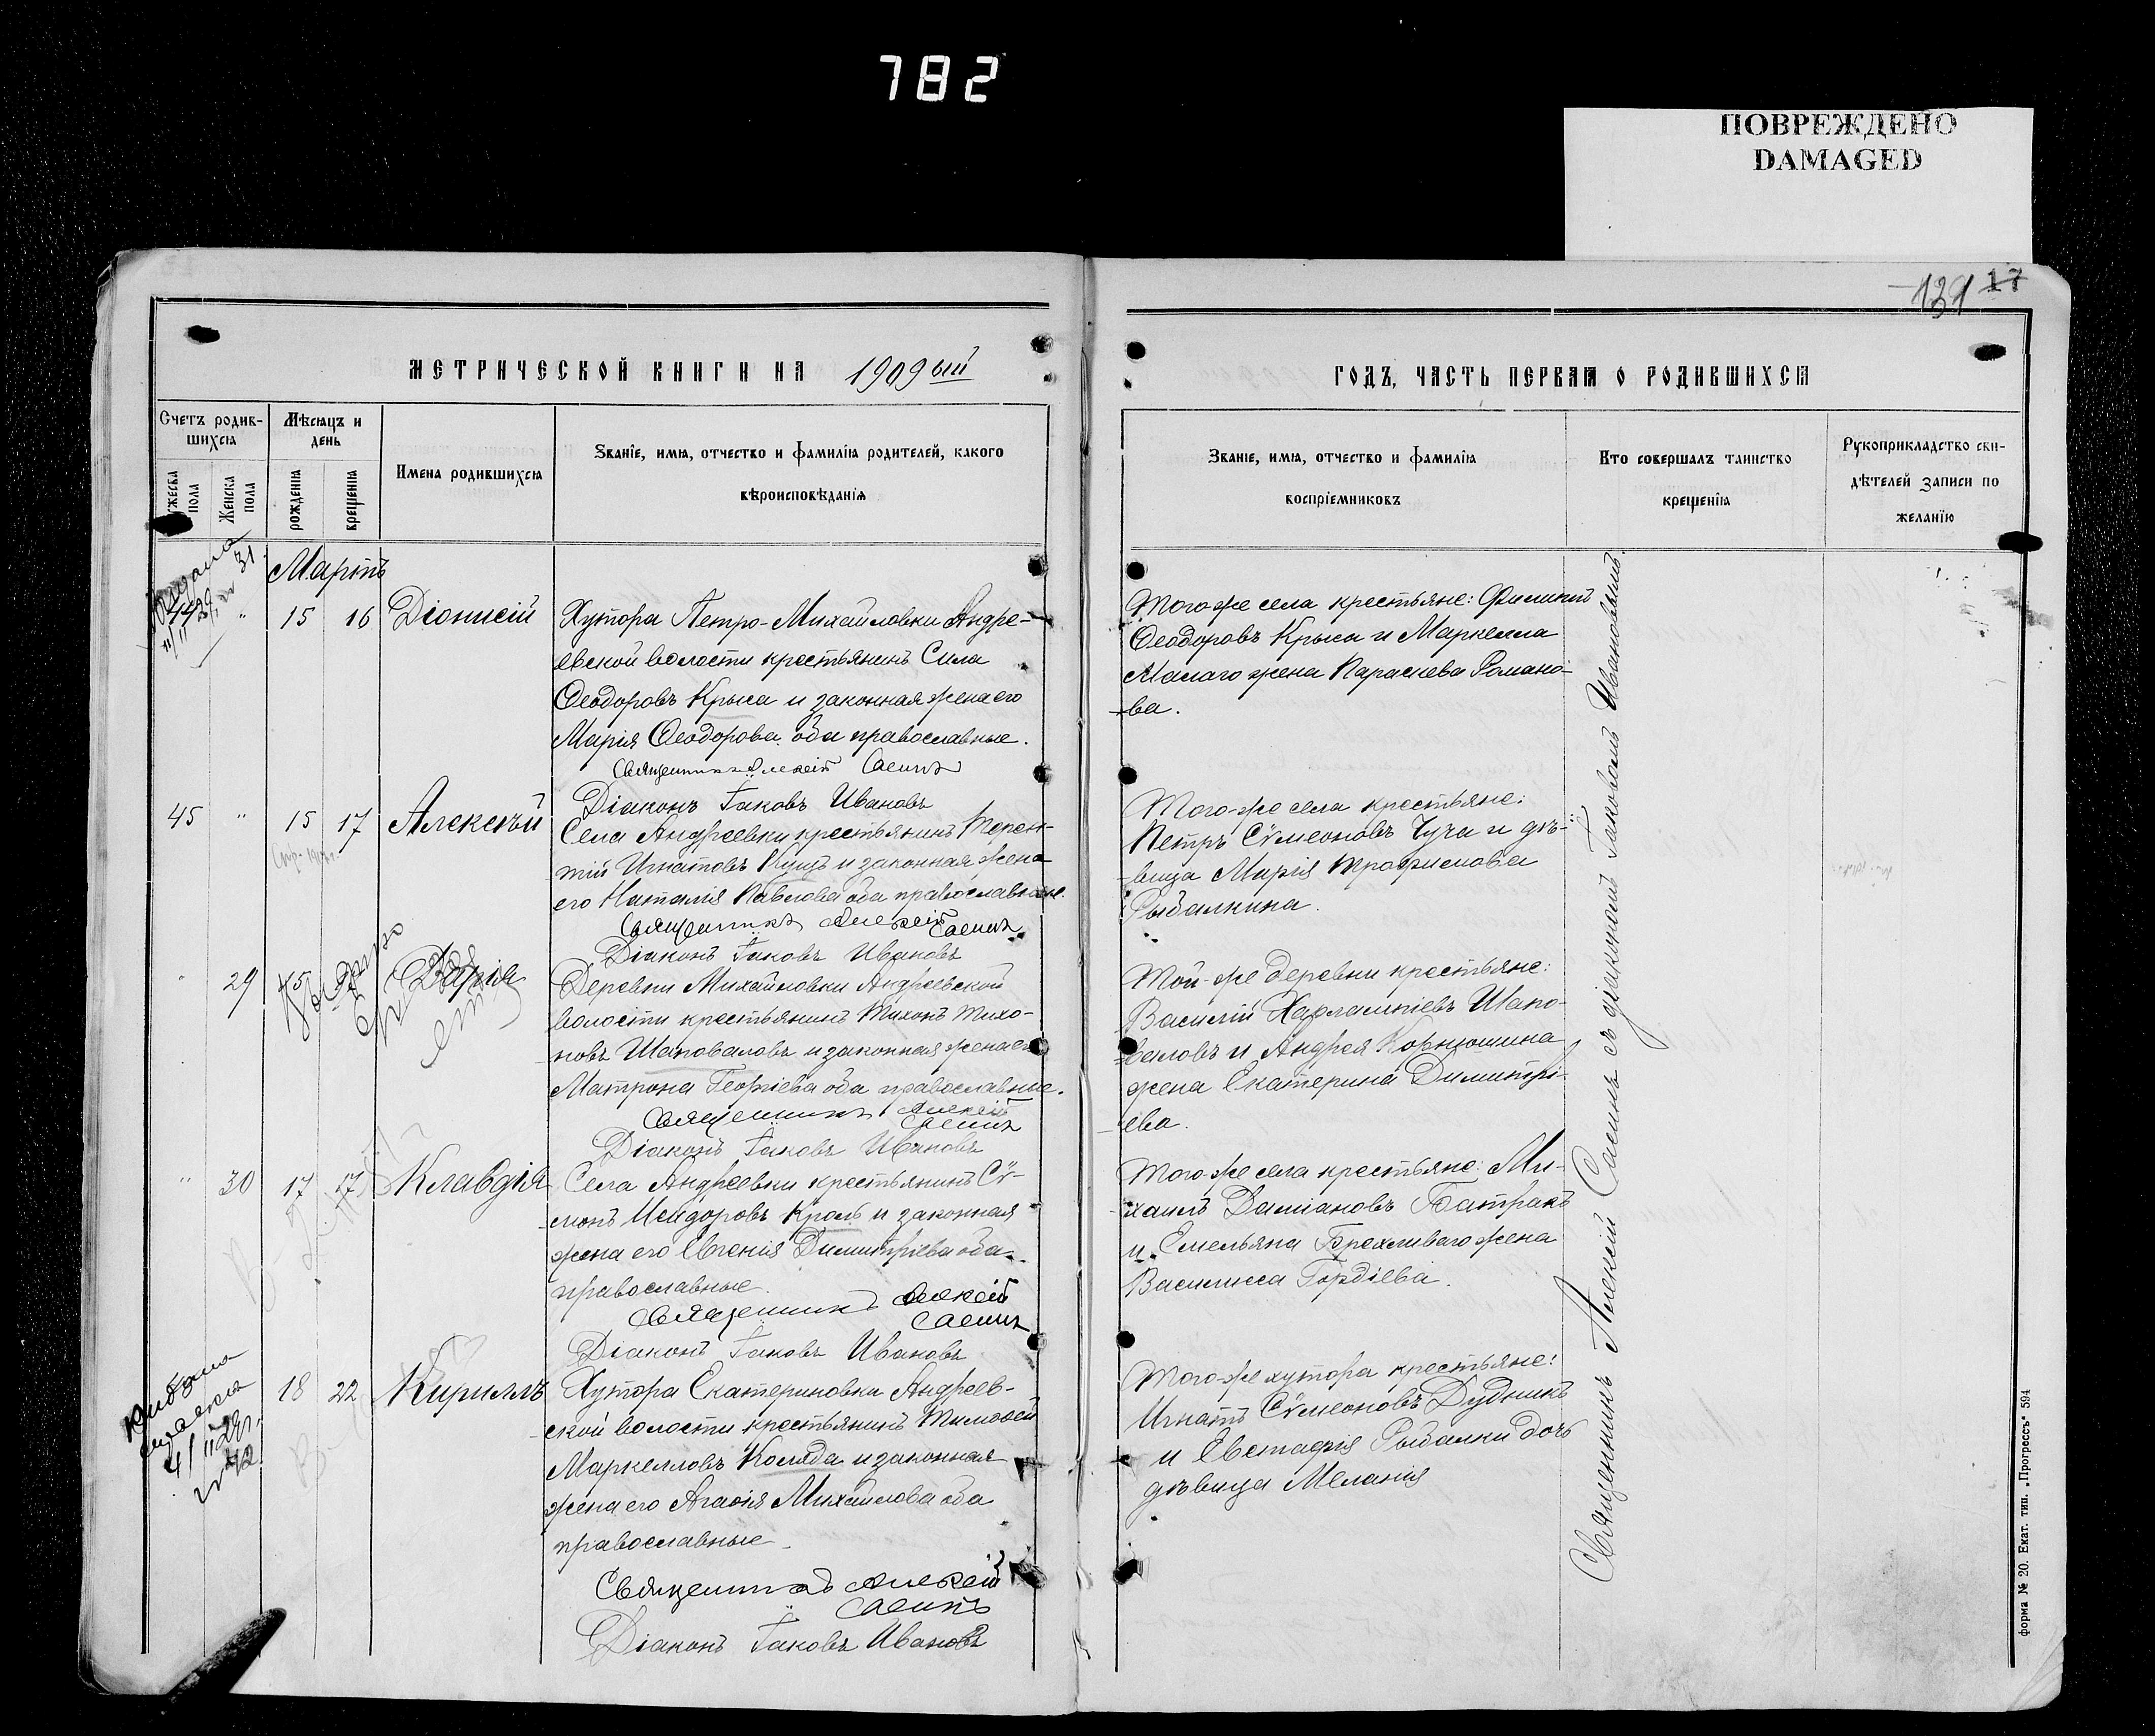 782
ПОВРЕЖДЕНО
DAMAGED
139 17
МЕТРИЧЕСКОЙ КНИГИ НА 1909ый
ГОДЪ, ЧАСТЬ ПЕРВАЯ О РОДИВШИХСЯ
Счетъ родив-
шихся
Мѣсяцъ и
день
Имена родившихся
Званіе, имя, отчество и фамилія родителей, какого
вѣроисповѣданія
пола
Женска
пола
рожденія
крещенія
Званіе, имя, отчество и фамилія
воспріемниковъ
Кто совершалъ таинство
крещенія
Рукоприкладство сви-
дѣтелей записи по
желанію
Мартъ
44 " 15 16 Діонисій
Хутора Петро-Михайловки Андре-
евской волости крестьянинъ Сила
Ѳеодоровъ Крыса и законная жена его
Марія Ѳеодорова оба православные.
Священникъ Алексій Саенкъ
Діаконъ Іаковъ Ивановъ
Того-же села крестьяне: Филиппъ
Ѳеодоровъ Крыса и Маркелла
Малаго жена Параскева Романо-
ва.
45 " 15 17 Алексѣй
Села Андреевки крестьянинъ Терен-
тій Игнатовъ и законная жена
его Наталія Павлова оба православные.
Священникъ Алексій Саенкъ
Діаконъ Іаковъ Ивановъ
Того-же села крестьяне:
Петръ Сѵмеоновъ Чуча и дѣ-
вица Марія Трофимова
Рыбалкина.
" 29 15 Дарія
Деревни Михайловки Андреевской
волости крестьянинъ Тихонъ Тихо-
новъ Шаповаловъ и законная жена его
Матрона Георгіева оба православные.
Священникъ Алексій
Саенкъ
Діаконъ Іаковъ Ивановъ
Той-же деревни крестьяне:
Василій Харлампіевъ Шапо-
валовъ и Андрея Корнюшина
жена Екатерина Димитрі-
ева.
" 30 17 17 Клавдія
Села Андреевки крестьянинъ Сѵ-
меонъ Исидоровъ Кроль и законная
жена его Евгенія Димитріева оба
православные.
Священникъ Алексій
Саенкъ
Діаконъ Іаковъ Ивановъ
Того-же села крестьяне: Ми-
хаилъ Даміановъ Батракъ
и Емельяна Брехливаго жена
Василисса Гордіева.
18 22 Кириллъ
Хутора Екатериновки Андреев-
ской волости крестьянинъ Тимоѳей
Маркелловъ Коляда и законная
жена его Агаѳія Михайлова оба
православные
Священникъ Алексій
Саенкъ
Діаконъ Іаковъ Ивановъ
Того-же хутора крестьяне:
Игнатъ Сѵмеоновъ Дудникъ
и Евстафія Рыбалки дочь
дѣвица Меланія
Священникъ Алексій Саенкъ съ діакономъ Іаковомъ Ивановымъ
форма № 20. Екат. тип. „Прогрессъ" 594